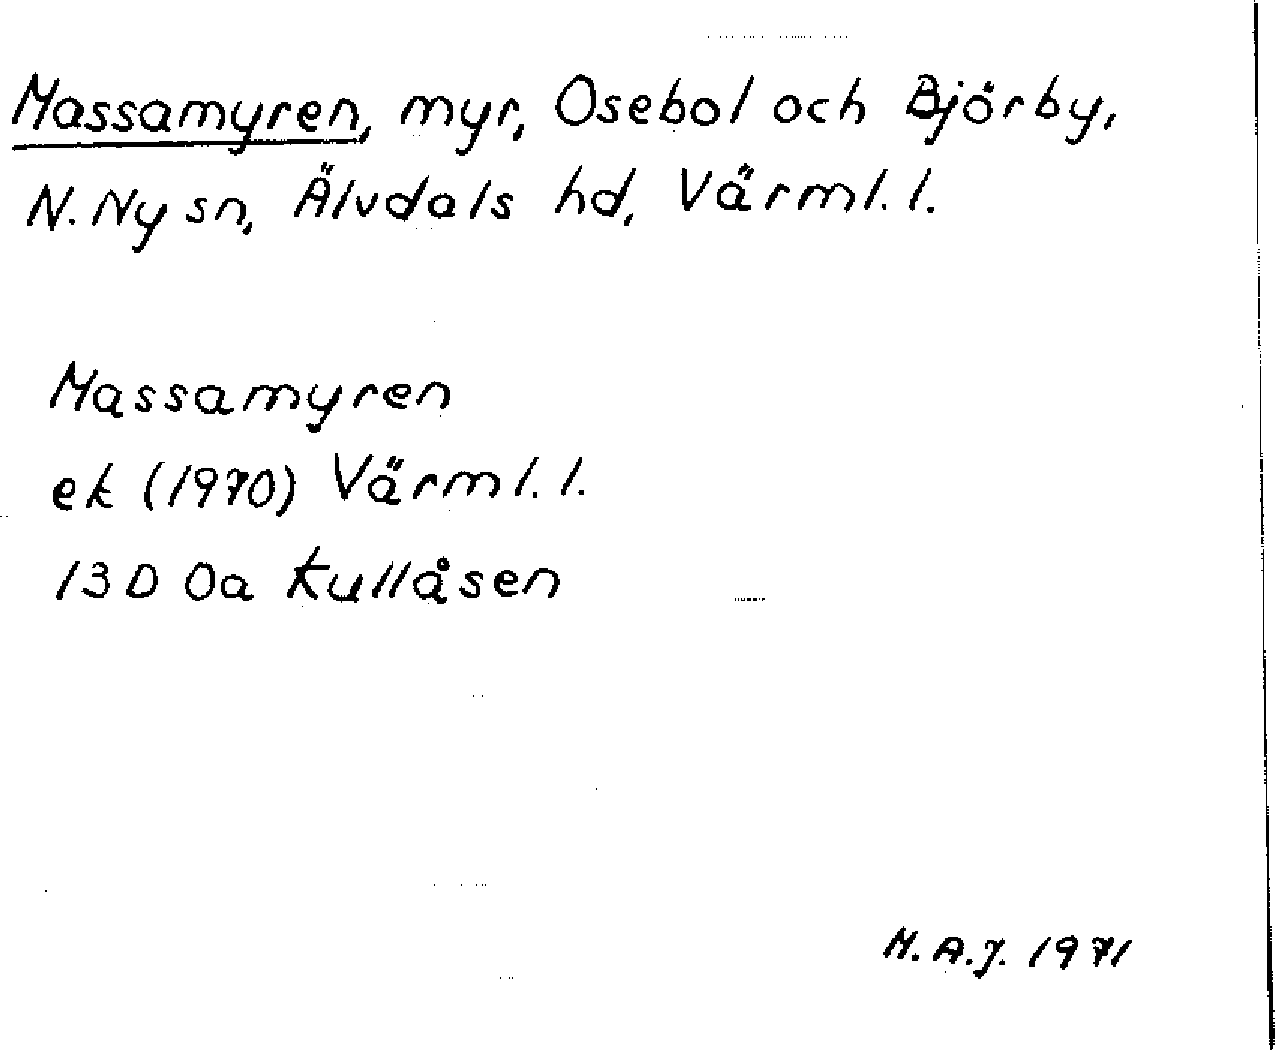 Massamyren, myr, Osebol och Björby,
N. Ny sn, Älvdals hd, Värml. l.
Massamyren
ek (1970) Värml. l.
13 D 0a Kullåsen
M. A. J. 1971